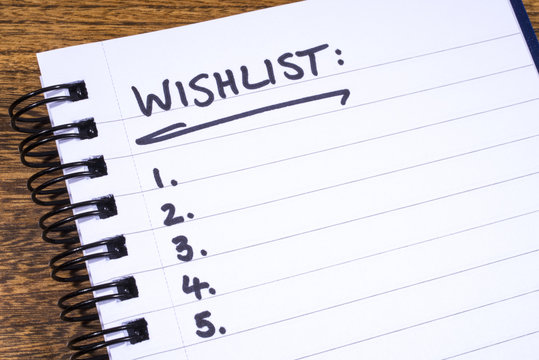 WISHLIST:
1.
2.
3.
4.
5.